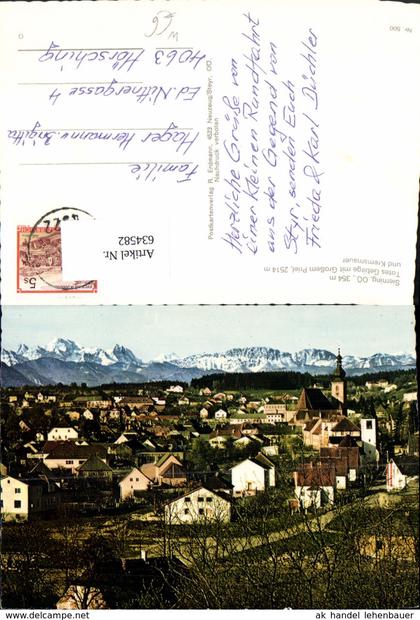 Nr. 500
Herzliche Grüße von
einer kleinen Rundfahrt
aus der Gegend von
Styr, senden Euch
Frieda & Karl Düchler
Sierning, OÖ., 354 m
Totes Gebirge mit Großem Priel, 2514 m
und Kremsmauer
Postkartenverlag R. Erdmann, 4523 Neuzeug/Steyr, OÖ.
Nachdruck verboten
Familie
Hager Hermann u. Brigitte
Ed. Nittnergasse 4
4063 Hörsching
5s
Artikel Nr.
634582
ak handel lehenbauer